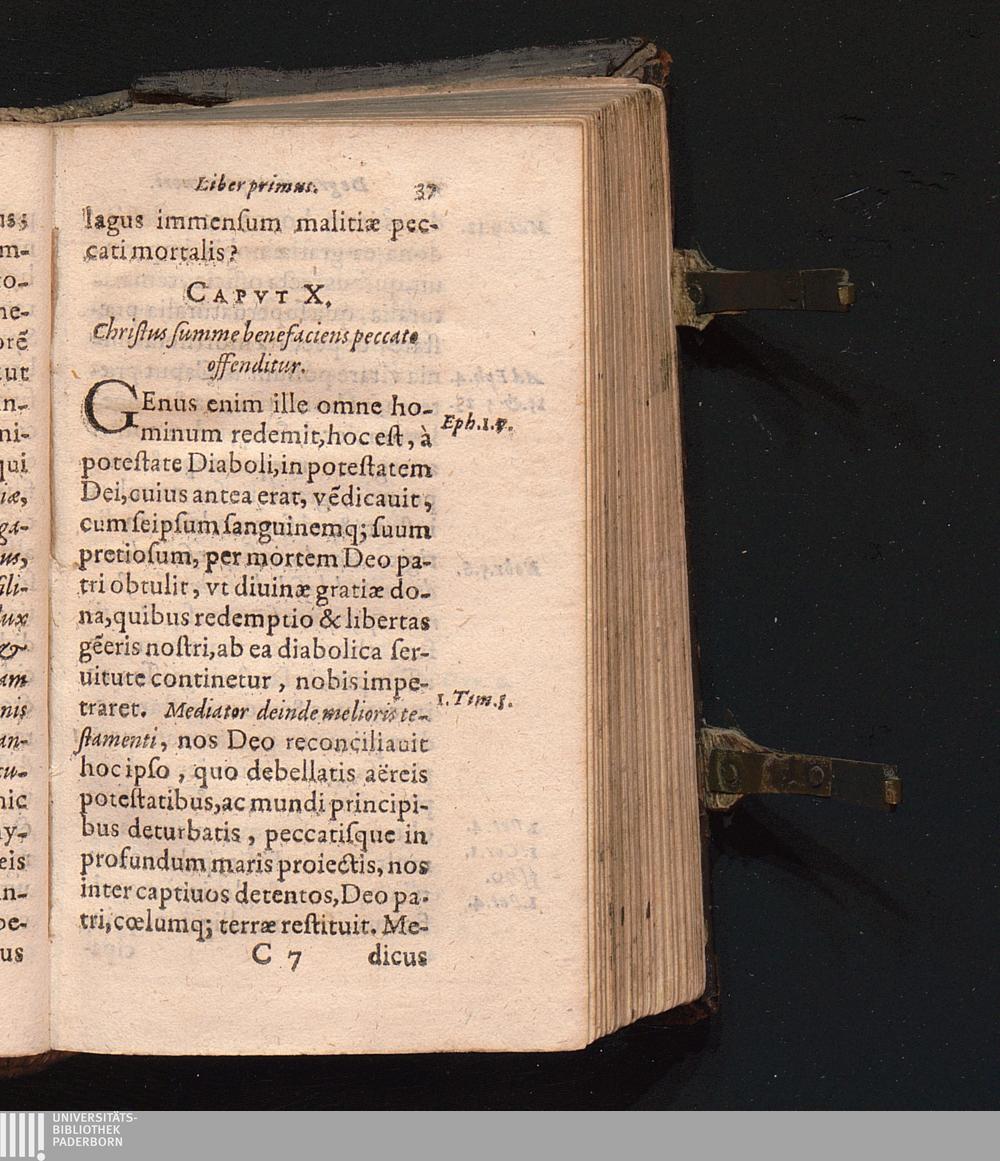 Liber primus. 37
lagus immenſum malitiæ pec-
cati mortalis?
CAPVT X.
Chriſtus ſumme benefaciens peccato
offenditur.
GEnus enim ille omne ho-
minum redemit, hoc eſt, à
Eph. 1. v.
poteſtate Diaboli, in poteſtatem
Dei, cuius antea erat, vẽdicauit,
cum ſeipſum ſanguinemq; ſuum
pretioſum, per mortem Deo pa-
tri obtulit, vt diuinæ gratiæ do-
na, quibus redemptio & libertas
gẽeris noſtri, ab ea diabolica ſer-
uitute continetur, nobis impe-
traret. Mediator deinde melioris te-
1. Tim.
ſtamenti, nos Deo reconciliauit
hoc ipſo, quo debellatis aëreis
poteſtatibus, ac mundi principi-
bus deturbatis, peccatiſque in
profundum maris proiectis, nos
inter captiuos detentos, Deo pa-
tri, cœlumq; terræ reſtituit. Me-
C 7 dicus
UNIVERSITÄTS-
BIBLIOTHEK
PADERBORN